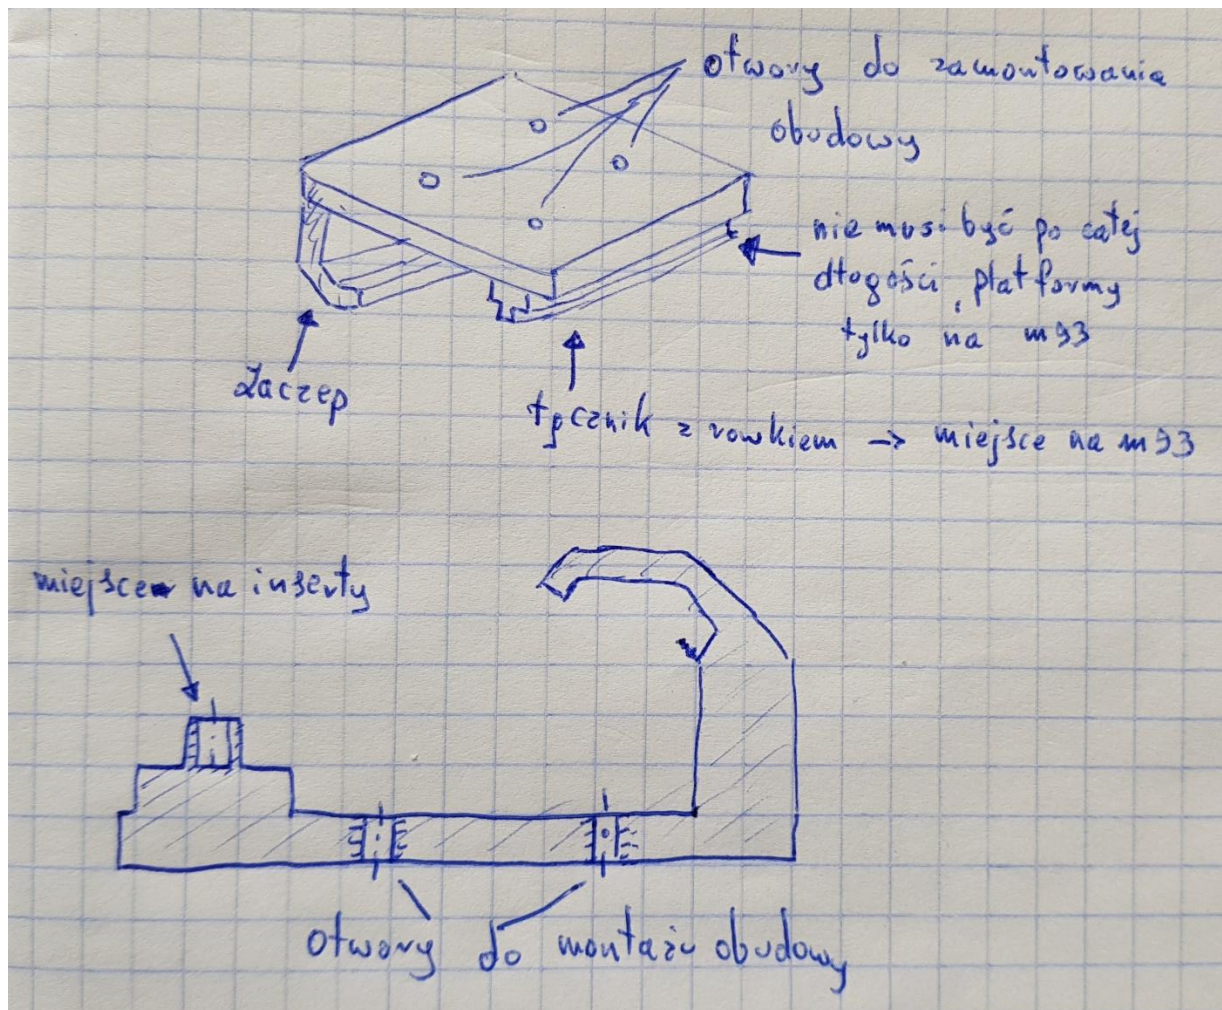 otwory do zamontowania
obudowy
nie musi być po całej
długości platformy
tylko na m93
Zaczep
łącznik z rowkiem → miejsce na m93
miejsce na inserty
otwory do montażu obudowy